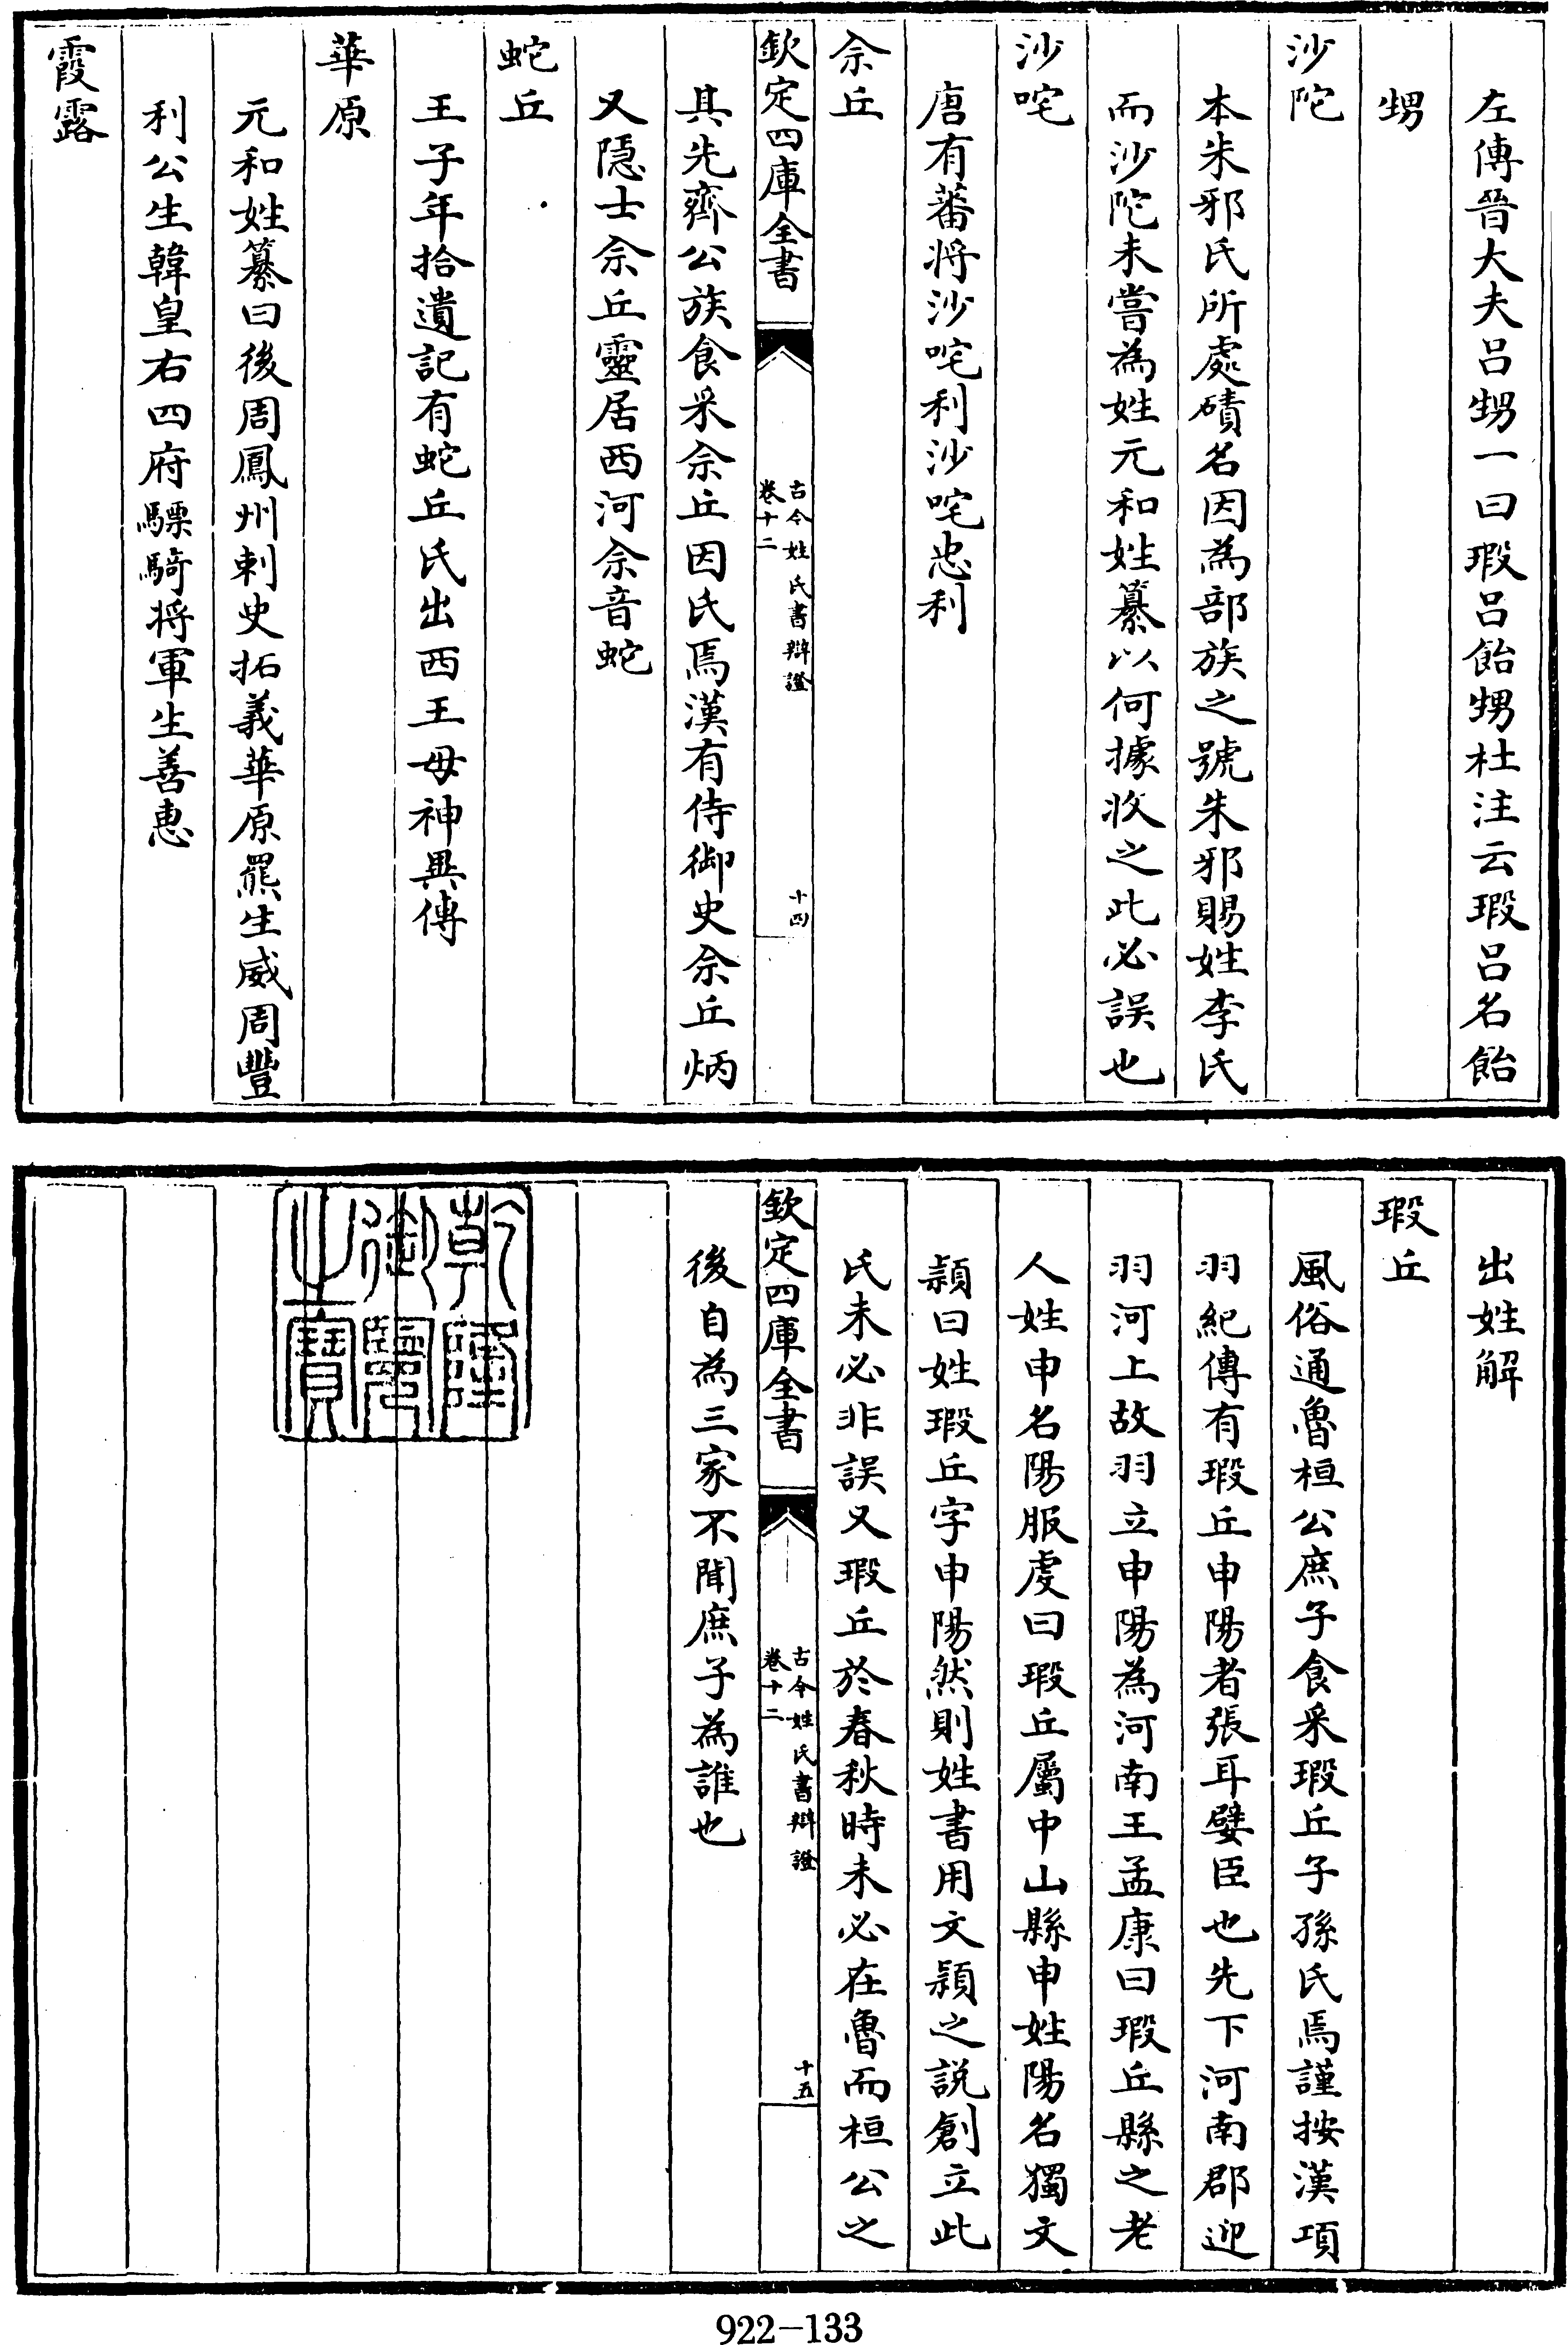 左傳晉大夫吕甥一曰瑕吕飴甥杜注云瑕吕名飴
甥
沙陀
本朱邪氏所處磧名因為部族之號朱邪賜姓李氏
而沙陀未嘗為姓元和姓纂以何據收之此必誤也
沙咤
唐有蕃將沙咤利沙咤忠利
佘丘
欽定四庫全書
古今姓氏書辯證
卷十二
十四
其先齊公族食采佘丘因氏焉漢有侍御史佘丘炳
又隱士佘丘靈居西河佘音蛇
蛇丘
王子年拾遺記有蛇丘氏出西王母神異傳
華原
元和姓纂曰後周鳳州刺史拓義華原羆生威周豐
利公生韓皇右四府驃騎將軍生善惠
霞露
出姓解
瑕丘
風俗通魯桓公庶子食采瑕丘子孫氏焉謹按漢項
羽紀傳有瑕丘申陽者張耳嬖臣也先下河南郡迎
羽河上故羽立申陽為河南王孟康曰瑕丘縣之老
人姓申名陽服虔曰瑕丘屬中山縣申姓陽名獨文
頴曰姓瑕丘字申陽然則姓書用文頴之説創立此
氏未必非誤又瑕丘於春秋時未必在魯而桓公之
欽定四庫全書
古今姓氏書辯證
卷十二
十五
後自為三家不聞庶子為誰也
乾隆
御覽
之寶
922-133